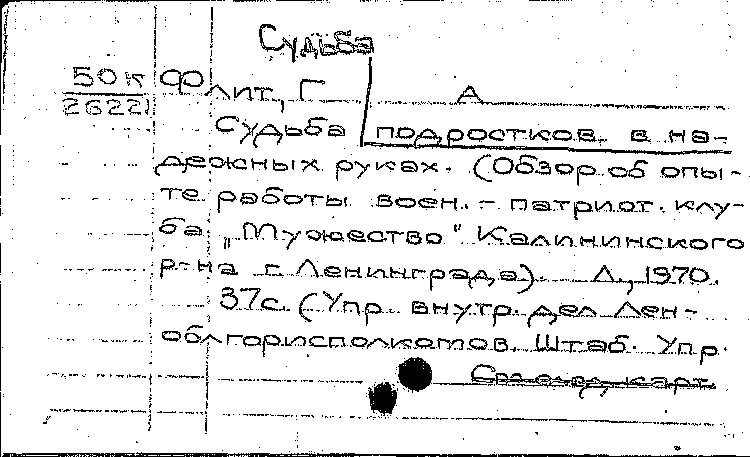 Судьба
50к Ф лит, Г А
2622
Судьба подростков в на-
дежных руках. (Обзор об опы-
те работы воен. - патриот. клу-
ба "Мужество" Калининского
р-на г. Ленинграда). Л., 1970.
37с. (Упр. внутр. дел Лен-
облгорисполкомов. Штаб. Упр.
См. след. карт.